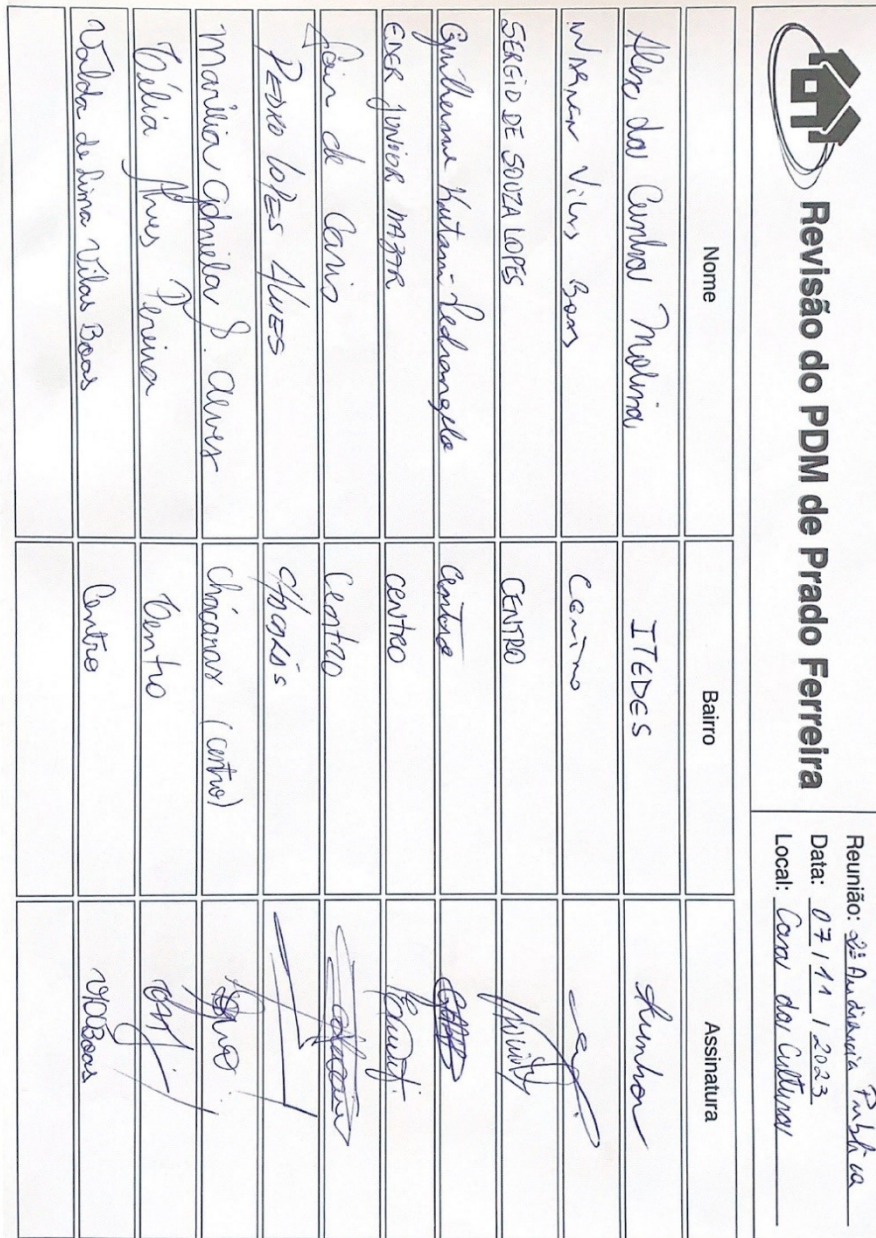 Revisão do PDM de Prado Ferreira
Reunião: 2ª Audiência Pública
Data: 07 / 11 / 2023
Local: Casa da Cultura
Nome Bairro Assinatura
Alex da Cunha Molina ITEDES Cunha
Vilas Boas Centro
SERGIO DE SOUZA LOPES CENTRO
Guilherme Kutani Pedrangelo Centro
EDER JUNIOR CENTRO
Centro
PEDRO LOPES ALVES
Marilia Gabriela S. Alves Chácaras (centro)
Célia Alves Pereira Centro
Valda de Lima Vilas Boas Centro VLVBoas